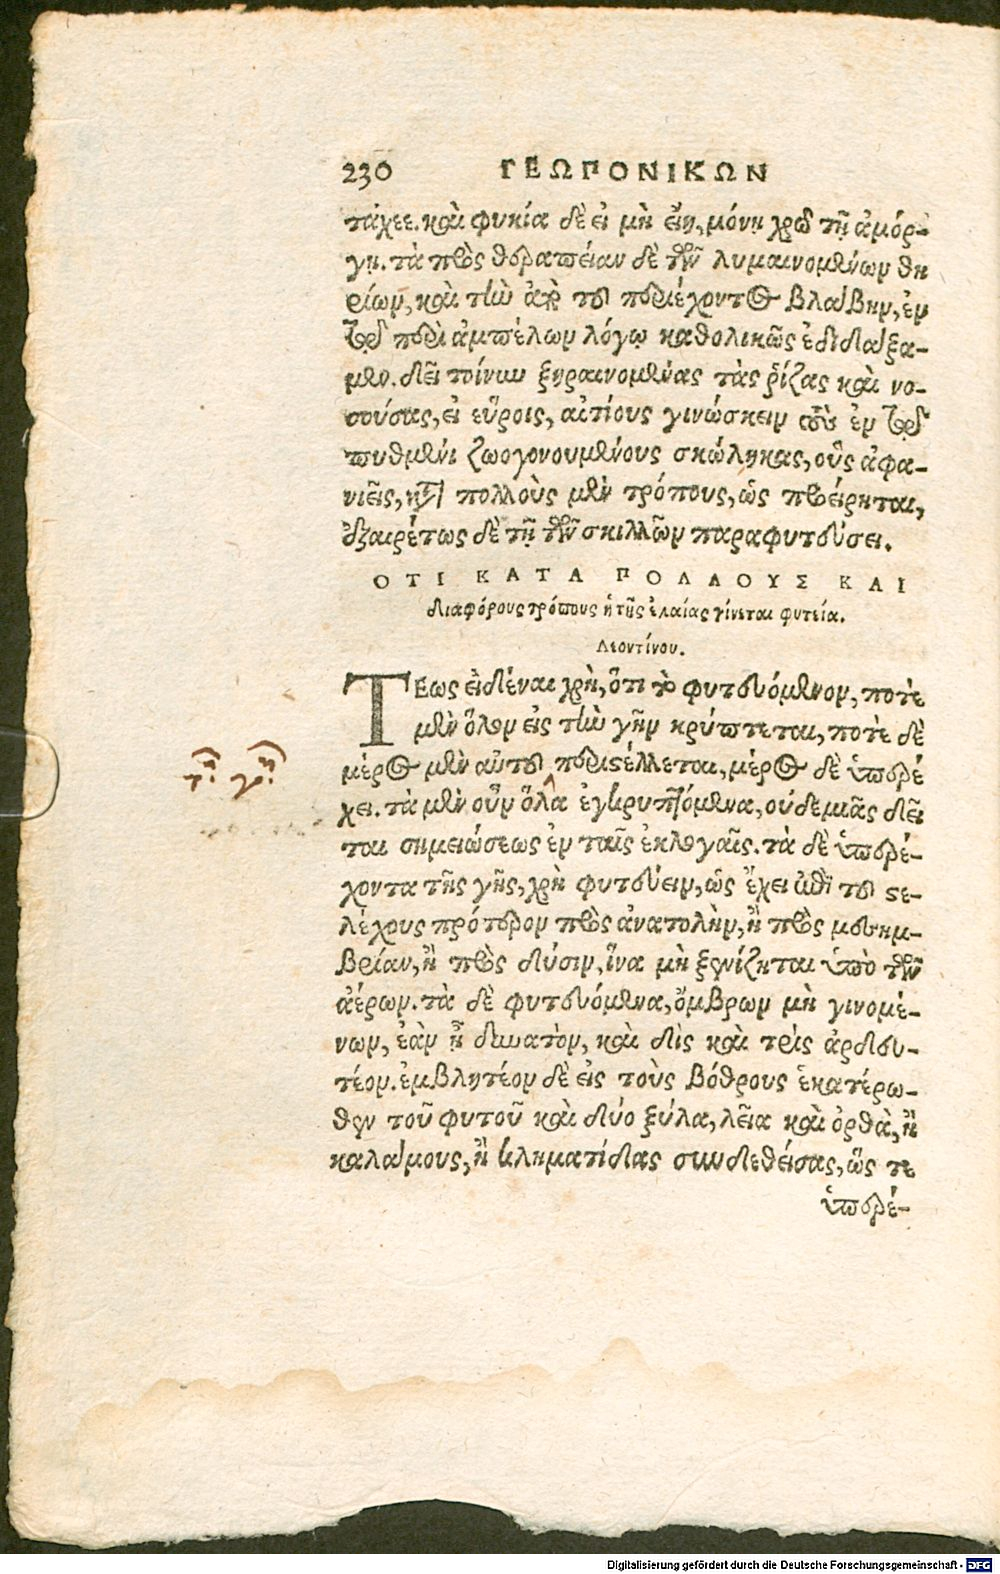 230 ΓΕΩΠΟΝΙΚΩΝ
τάχεε. καὶ φυκία δὲ εἰ μὴ εἴη, μόνῃ χρῶ τῇ ἀμόρ-
γῃ. τὰ πρὸς θεραπείαν δὲ τῶν λυμαινομένων θη
ρίων, καὶ τὴν ἀπὸ τοῦ περιέχοντος βλάβην, ἐν
τῷ περὶ ἀμπέλων λόγῳ καθολικῶς ἐδιδάξα-
μεν. δεῖ τοίνυν ξηραινομένας τὰς ῥίζας καὶ νο-
σούσας, εἰ εὕροις, αἰτίους γινώσκειν τοὺς ἐν τῷ
πυθμένι ζωογονουμένους σκώληκας, οὓς ἀφα-
νιεῖς, κατὰ πολλοὺς μὲν τρόπους, ὡς προείρηται,
ἐξαιρέτως δὲ τῇ τῶν σκιλλῶν παραφυτεύσει.
ΟΤΙ ΚΑΤΑ ΠΟΛΛΟΥΣ ΚΑΙ
διαφόρους τρόπους ἡ τῆς ἐλαίας γίνεται φυτεία.
Λεοντίνου.
ΤΕως εἰδέναι χρὴ, ὅτι τὸ φυτευόμενον, ποτὲ
μὲν ὅλον εἰς τὴν γῆν κρύπτεται, ποτὲ δὲ
μέρος μὲν αὐτοῦ περιστέλλεται, μέρος δὲ ὑπερέ
χει. τὰ μὲν οὖν ὅλα ἐγκρυπτόμενα, οὐδεμιᾶς δεῖ
ται σημειώσεως ἐν ταῖς ἐκλογαῖς. τὰ δὲ ὑπερέ-
χοντα τῆς γῆς, χρὴ φυτεύειν, ὡς ἔχει ἐπὶ τοῦ στε-
λέχους πρότερον πρὸς ἀνατολὴν, ἢ πρὸς μεσημ-
βρίαν, ἢ πρὸς δύσιν, ἵνα μὴ ξενίζηται ὑπὸ τῶν
ἀέρων. τὰ δὲ φυτευόμενα, ὄμβρων μὴ γινομέ-
νων, ἐὰν ᾖ δυνατὸν, καὶ δὶς καὶ τρὶς ἀρδευ-
τέον. ἐμβλητέον δὲ εἰς τοὺς βόθρους ἑκατέρω-
θεν τοῦ φυτοῦ καὶ δύο ξύλα, λεῖα καὶ ὀρθὰ, ἢ
καλάμους, ἢ κληματίδας συνδεθείσας, ὥς τε
ὑπερέ-
τῇ γῇ
Digitalisierung gefördert durch die Deutsche Forschungsgemeinschaft - DFG